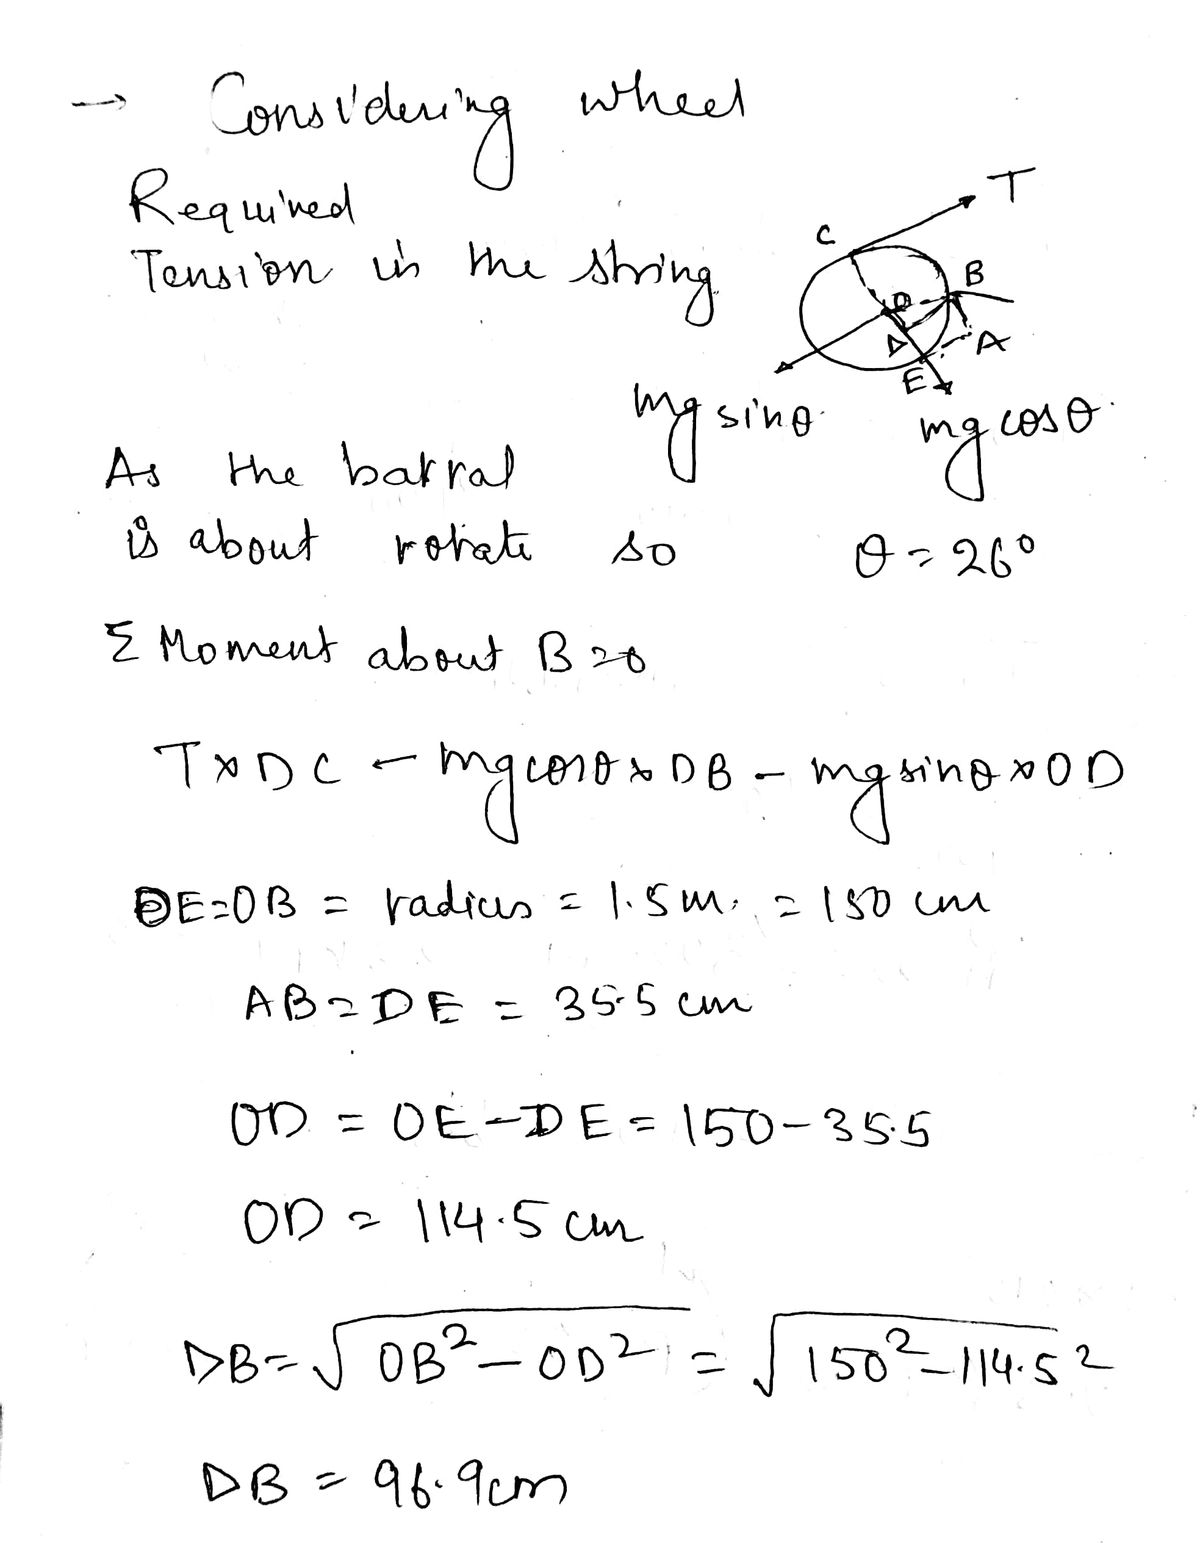 → Considering wheel
Required
Tension in the string
T
C
B
O
D
A
E
mg sinθ
mg cosθ
As the barral
is about rotate so
θ = 26°
Σ Moment about B = 0
T × DC - mg cosθ × DB - mg sinθ × OD
OE = OB = radius = 1.5 m. = 150 cm
AB = DE = 35.5 cm
OD = OE - DE = 150 - 35.5
OD = 114.5 cm
DB = √OB² - OD² = √150² - 114.5²
DB = 96.9 cm